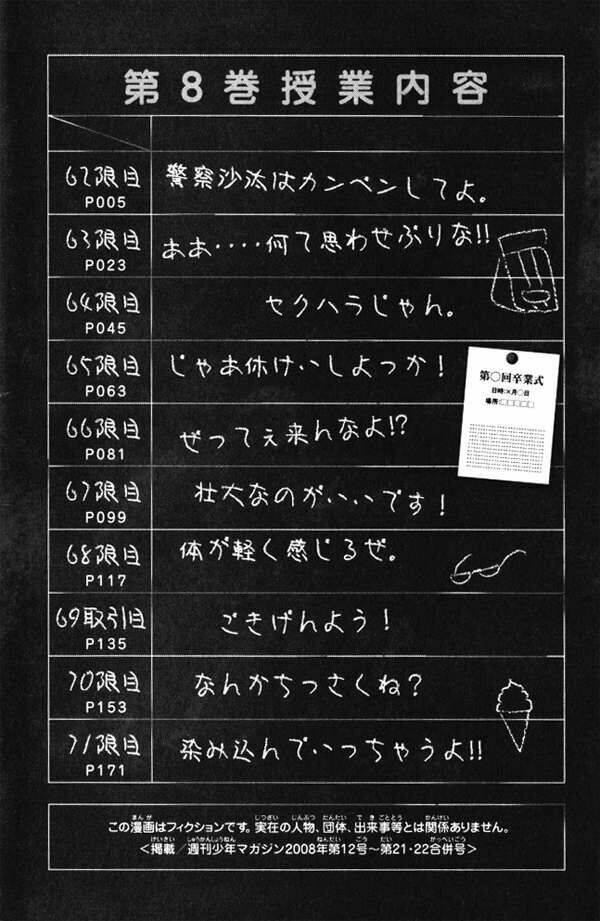 第8巻授業内容
62限目
P005
警察沙汰はカンベンしてよ。
63限目
P023
ああ‥‥何て思わせぶりな!!
64限目
P045
セクハラじゃん。
65限目
P063
じゃあ休けいしよっか!
第○回卒業式
日時:×月○日
場所:□□□□□
66限目
P081
ぜってえ来んなよ!?
67限目
P099
壮大なのがいいです!
68限目
P117
体が軽く感じるぜ。
69取引目
P135
ごきげんよう!
70限目
P153
なんかちっさくね?
71限目
P171
染み込んでいっちゃうよ!!
この漫画はフィクションです。実在の人物、団体、出来事等とは関係ありません。
<掲載/週刊少年マガジン2008年第12号〜第21・22合併号>